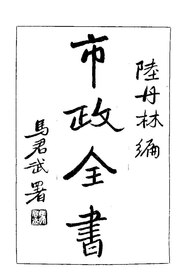 陸丹林編
市政全書
馬君武署